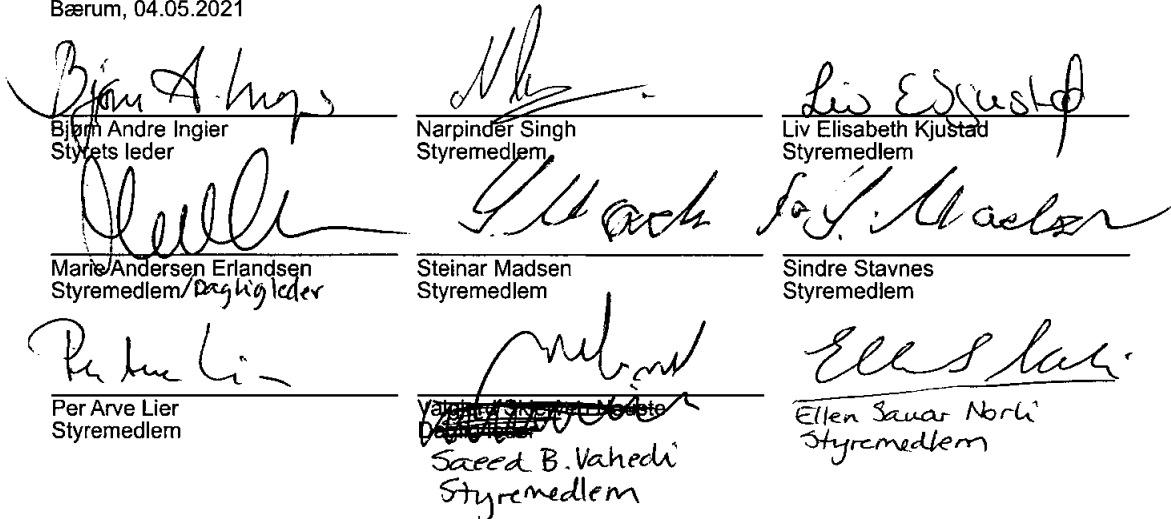 Bærum, 04.05.2021
Bjørn A. Ingier
Bjørn Andre Ingier
Styrets leder
Narpinder Singh
Styremedlem
Liv E Kjustad
Liv Elisabeth Kjustad
Styremedlem
Marie Andersen Erlandsen
Styremedlem/Daglig leder
S. Madsen
Steinar Madsen
Styremedlem
for S. Madsen
Sindre Stavnes
Styremedlem
Per Arve Lier
Per Arve Lier
Styremedlem
Daglig leder
Saeed B. Vahedi
Styremedlem
Ellen Sauar Norli
Styremedlem